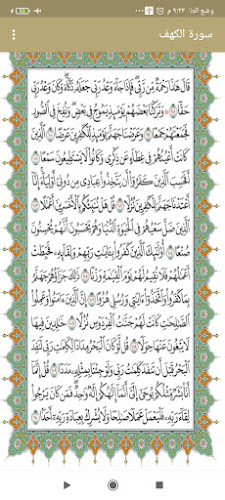 وضع الطا... ٩:٢٢ م
سورة الكهف
قَالَ هَٰذَا رَحْمَةٌ مِّن رَّبِّي ۖ فَإِذَا جَآءَ وَعْدُ رَبِّي جَعَلَهُۥ دَكَّآءَ ۖ وَكَانَ وَعْدُ رَبِّي
حَقًّا ٩٨ ۞ وَتَرَكْنَا بَعْضَهُمْ يَوْمَئِذٍ يَمُوجُ فِي بَعْضٍ ۖ وَنُفِخَ فِي ٱلصُّورِ
فَجَمَعْنَٰهُمْ جَمْعًا ٩٩ وَعَرَضْنَا جَهَنَّمَ يَوْمَئِذٍ لِّلْكَٰفِرِينَ عَرْضًا ١٠٠ ٱلَّذِينَ
كَانَتْ أَعْيُنُهُمْ فِي غِطَآءٍ عَن ذِكْرِي وَكَانُوا۟ لَا يَسْتَطِيعُونَ سَمْعًا ١٠١
أَفَحَسِبَ ٱلَّذِينَ كَفَرُوٓا۟ أَن يَتَّخِذُوا۟ عِبَادِي مِن دُونِيٓ أَوْلِيَآءَ ۚ إِنَّآ
أَعْتَدْنَا جَهَنَّمَ لِلْكَٰفِرِينَ نُزُلًا ١٠٢ قُلْ هَلْ نُنَبِّئُكُم بِٱلْأَخْسَرِينَ أَعْمَٰلًا ١٠٣
ٱلَّذِينَ ضَلَّ سَعْيُهُمْ فِي ٱلْحَيَوٰةِ ٱلدُّنْيَا وَهُمْ يَحْسَبُونَ أَنَّهُمْ يُحْسِنُونَ
صُنْعًا ١٠٤ أُو۟لَٰٓئِكَ ٱلَّذِينَ كَفَرُوا۟ بِـَٔايَٰتِ رَبِّهِمْ وَلِقَآئِهِۦ فَحَبِطَتْ
أَعْمَٰلُهُمْ فَلَا نُقِيمُ لَهُمْ يَوْمَ ٱلْقِيَٰمَةِ وَزْنًا ١٠٥ ذَٰلِكَ جَزَآؤُهُمْ جَهَنَّمُ
بِمَا كَفَرُوا۟ وَٱتَّخَذُوٓا۟ ءَايَٰتِي وَرُسُلِي هُزُوًا ١٠٦ إِنَّ ٱلَّذِينَ ءَامَنُوا۟ وَعَمِلُوا۟
ٱلصَّٰلِحَٰتِ كَانَتْ لَهُمْ جَنَّٰتُ ٱلْفِرْدَوْسِ نُزُلًا ١٠٧ خَٰلِدِينَ فِيهَا
لَا يَبْغُونَ عَنْهَا حِوَلًا ١٠٨ قُل لَّوْ كَانَ ٱلْبَحْرُ مِدَادًا لِّكَلِمَٰتِ رَبِّي لَنَفِدَ
ٱلْبَحْرُ قَبْلَ أَن تَنفَدَ كَلِمَٰتُ رَبِّي وَلَوْ جِئْنَا بِمِثْلِهِۦ مَدَدًا ١٠٩ قُلْ إِنَّمَآ
أَنَا۠ بَشَرٌ مِّثْلُكُمْ يُوحَىٰٓ إِلَيَّ أَنَّمَآ إِلَٰهُكُمْ إِلَٰهٌ وَٰحِدٌ ۖ فَمَن كَانَ يَرْجُوا۟
لِقَآءَ رَبِّهِۦ فَلْيَعْمَلْ عَمَلًا صَٰلِحًا وَلَا يُشْرِكْ بِعِبَادَةِ رَبِّهِۦٓ أَحَدًۢا ١١٠